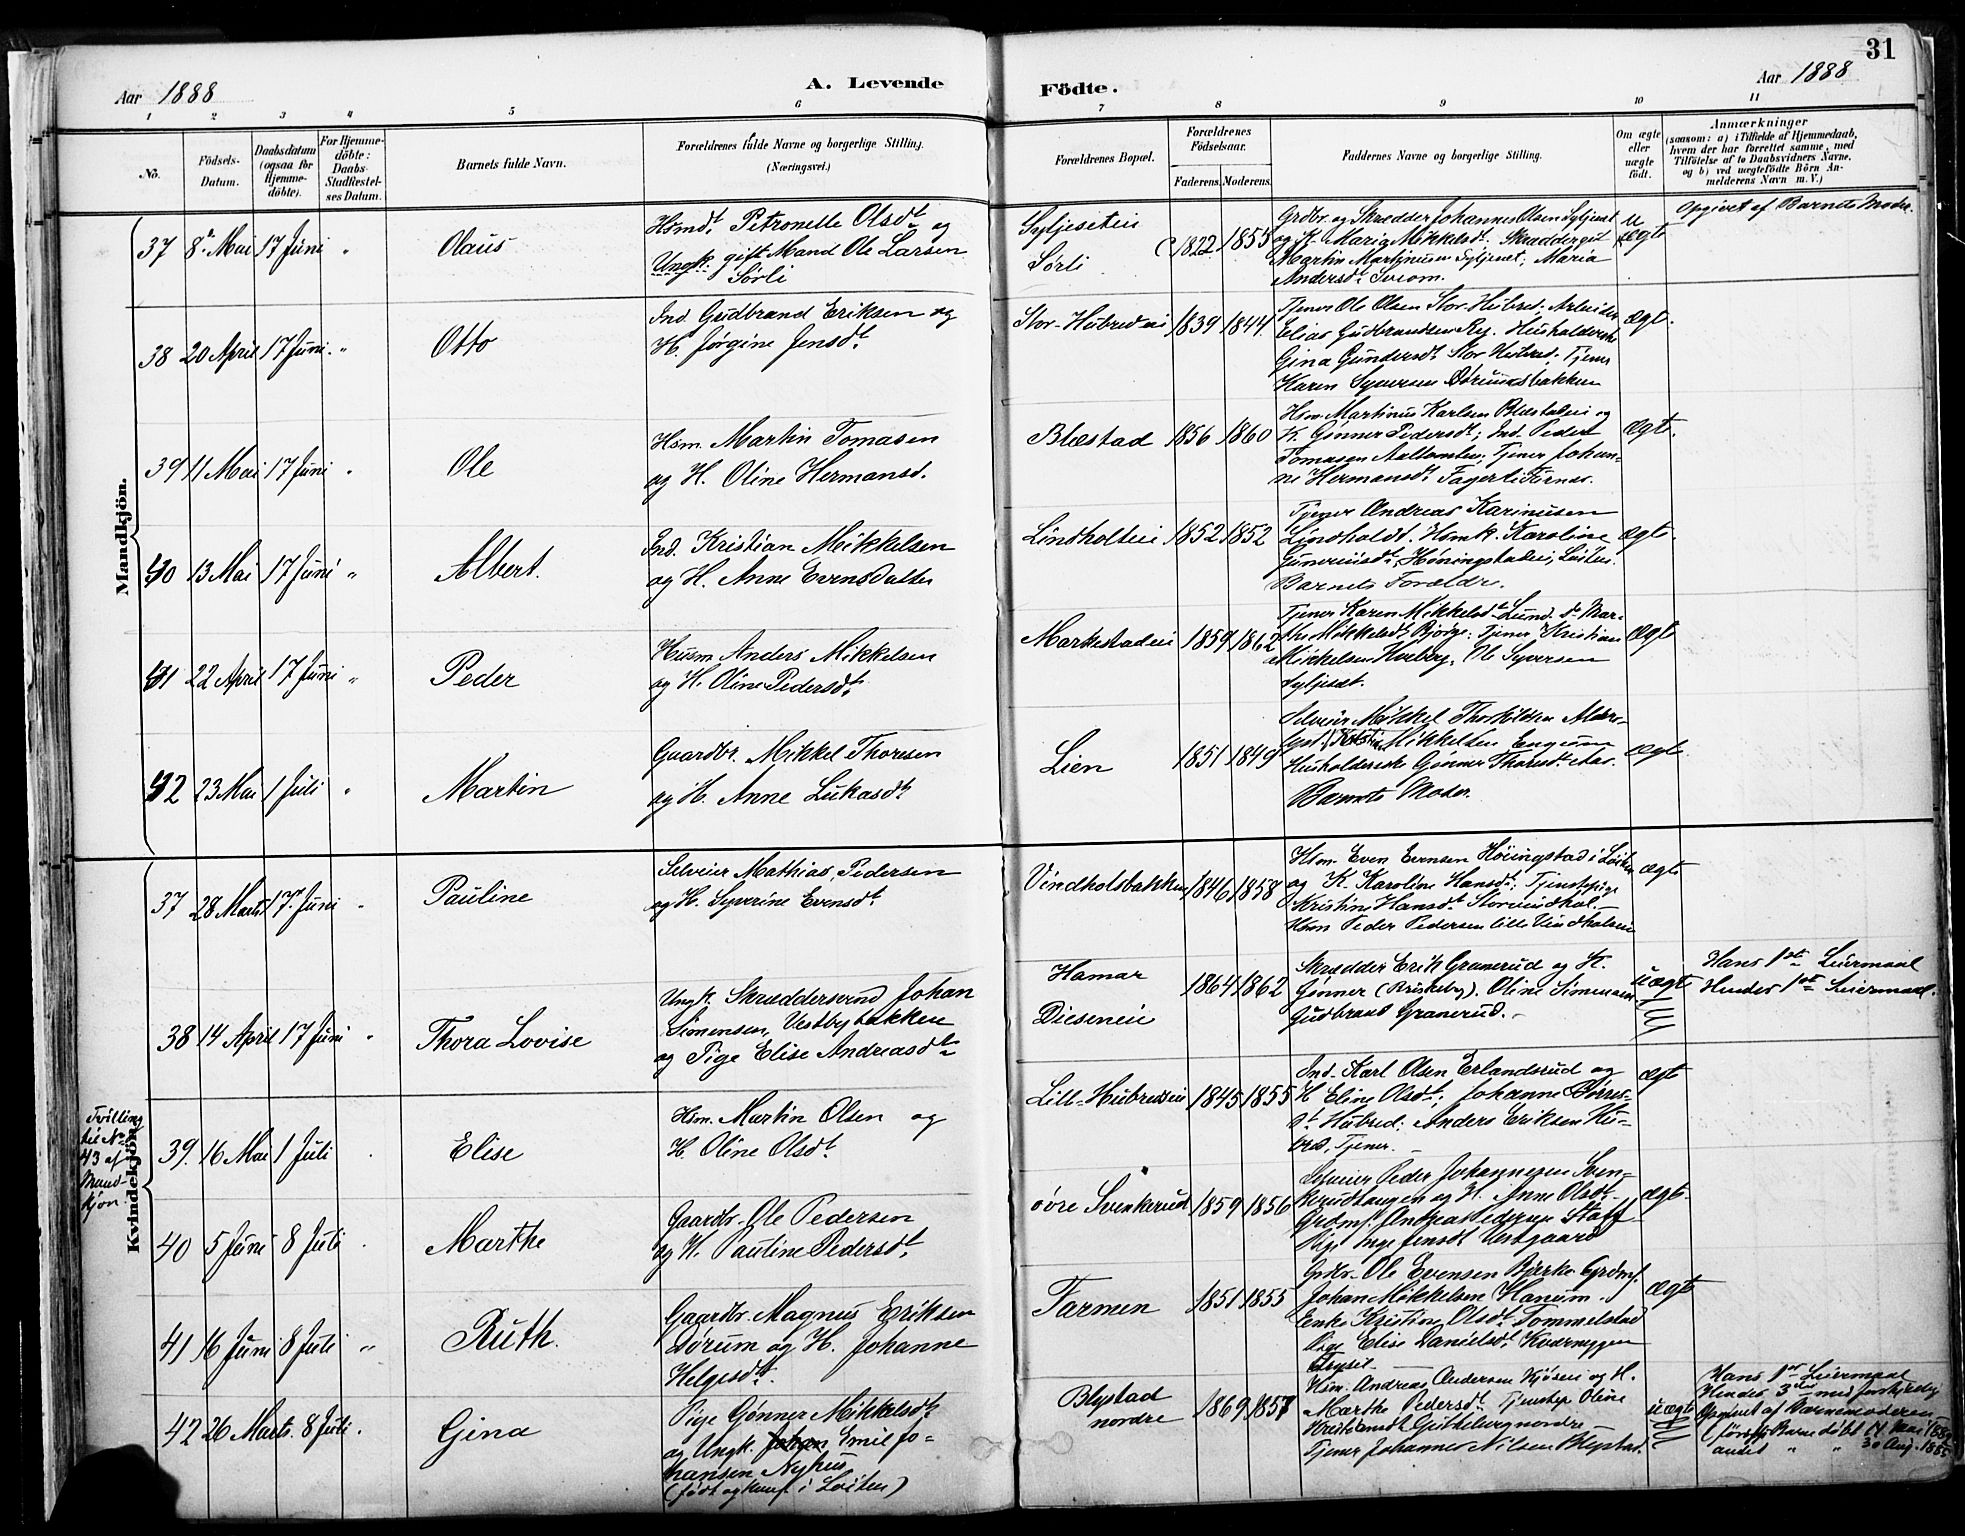 31
Aar 1888
A. Levende
Födte.
Aar 1888
1 2 3 4 5 6 7 8 9 10 11
No.
Födsels-
Datum.
Daabsdatum
(ogsaa for
Hjemme-
döbte).
For Hjemme-
döbte:
Daabs-
Stadfæstel-
ses Datum.
Barnets fulde Navn.
Forældrenes fulde Navne og borgerlige Stilling.
(Næringsvei.)
Forældrenes Bopæl.
Forældrenes
Födselsaar.
Faderens. Moderens.
Faddernes Navne og borgerlige Stilling.
Om ægte
eller
uægte
födt.
Anmærkninger
(saasom: a) i Tilfælde af Hjemmedaab,
hvem der har forrettet samme, med
Tilföielse af to Daabsvidners Navne,
og b) ved uægtefödte Börn An-
melderens Navn m. V.)
Mandkjön.
37 8de Mai 17 Juni " Olaus
Hsmdt. Petronelle Olsdt og
Ungk. gift Mand Ole Larsen
Sørli
Syljeseteie
Sørli
1822 1855
Grdbr. og Skrædder Johannes Olsen Syljeset
og K. Maria Mikkelsdt. Skræddergut
Martin Martinusen Syljeset; Maria
Andersdt Sveom.
u
ægte
Opgivet af Barnets Moder.
38 20 April 17 Juni " Otto
Ind. Gudbrand Eriksen og
H. Jørgine Jensdt.
Stor-Hubred ei 1839 1844
Tjener Ole Olsen Stor Hubred. Arbeider
Elias Gudbrandsen Ry. Husholderske
Gina Gundersdt Stor Hubred. Tjener
Karen Syversen Dørumsbakken
ægt.
39 11 Mai 17 Juni " Ole
Hsm. Martin Tomasen
og H. Oline Hermansd.
Blæstad 1856 1860
Hsm. Martinus Karlsen Blæstadeie og
K. Gønner Pedersdt; Ind. Peder
Tomasen; Tjener Johan-
ne Hermansdt Fagerli Furnes.
ægte.
40 13 Mai 17 Juni " Albert.
Ind. Kristian Mikkelsen
og H. Anne Evensdatter
Lindholteie 1852 1852
Tjener Andreas Karinusen
Lindholdt. Hsmk. Karoline
Guneriusdt, Høiningstadeie, Løiten.
Barnets Forældre.
ægte.
41 22 April 17 Juni " Peder
Husm. Anders Mikkelsen
og H. Oline Pedersdt.
Markestadeie 1859 1862
Tjener Karen Mikkelsdt Lund. do Mar-
the Mikkelsdt Bjørge: Tjener Kristian
Mikkelsen Hveberg, Ole Syversen
Syljeset.
ægte
42 23 Mai 1 Juli " Martin
Gaardbr. Mikkel Thoresen
og H. Anne Lukasdt
Lien 1851 1849
Selveier Mikkel Thorkildsen
Mikkelsen Engum
Husholderske Gønner Thoresdt
Barnets Moder.
ægte.
Kvindekjön.
37 28 Marts 17 Juni " Pauline
Selveier Mathias Pedersen
og H. Syverine Evensdt
Vindholsbakken 1846 1858
Hsm. Even Evensen Høiingstad i Løiten
og K. Karoline Hansdt; Tjenstpige
Kristine Hansdt Storvindhol.
Hsm Peder Pedersen lille Vindholseie
ægte
38 14 April 17 Juni " Thora Lovise
Ungk. Skræddersvend Johan
Simensen, Vestbybakken
og Pige Elise Andreasdt
Hamar
Dieseneie
1864 1862
Skrædder Erik Granerud og K.
Gønner (Briskeby). Oline Simensen
Gudbrand Granerud.
uægte
Hans 1ste Leiermaal
Hendes 1ste Leiermaal.
Tvilling
til No
43 af
Mand-
kjøn.
39. 16 Mai 1 Juli Elise
Hsm. Martin Olsen og
H. Oline Olsdt
Lill-Hubredeie 1845 1855
Ind. Karl Olsen Erlandsrud og
K Eline Olsdt. Johanne Børres-
dt Hubred. Anders Eriksen Hu-
bred, Tjener.
ægt
40 5 Juni 8 Juli Marthe
Gaardbr. Ole Pedersen
og H. Pauline Pedersdt.
øvre Svenkerud 1859 1856
Selveier Peder Johannesen Sven-
kerudhaugen og K. Anne Olsdt.
Grdmf. Andreas Pedersen Staff
Pige Inge Jensdt Vestgaard
ægte.
41 16 Juni 8 Juli " Ruth.
Gaardbr. Magnus Eriksen
Dørum og H. Johanne
Helgesdt.
Farmen 1851 1855
Grdbr. Ole Evensen Bjerke. Grdmf.
Johan Mikkelsen Hanum.
Enke Kristine Olsdt Tommelstad
Pige Elise Danielsdt Kværneggen
Trysil
ægte
42 26 Marts. 8 Juli. Gina
Pige Gønner Mikkelsdt
og Ungk. Johan Emil Jo-
hansen Nyhus
(født og konf. i Løiten)
Blystad
nordre
1869 1857
Hsm. Andreas Andersen Kjøsen og H.
Marthe Pedersdt. Tjenstep. Oline
Kristiansdt Gjitleberg nordre
Tjener Johannes Nilsen Blystad.
uægte
Hans 1ste Leiermaal
Hendes 3die med forskjellig
Opgivet af Barnemoderen
(første Barn døbt 14 Mai 1882
andet " " 30 Aug. 1885